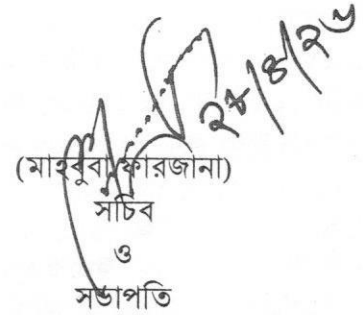 ২৮/৪/২৬
(মাহবুবা ফারজানা)
সচিব
ও
সভাপতি